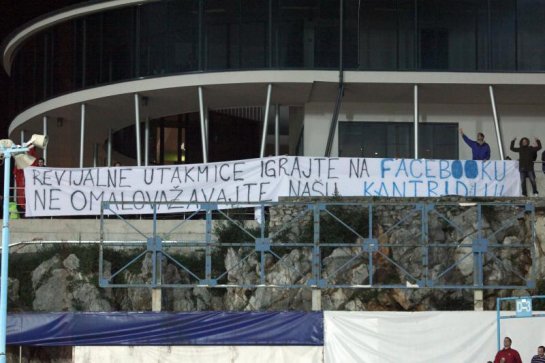 REVIJALNE UTAKMICE IGRAJTE NA FACEBOOKU
NE OMALOVAŽAVAJTE NAŠU KANTRIDU!!